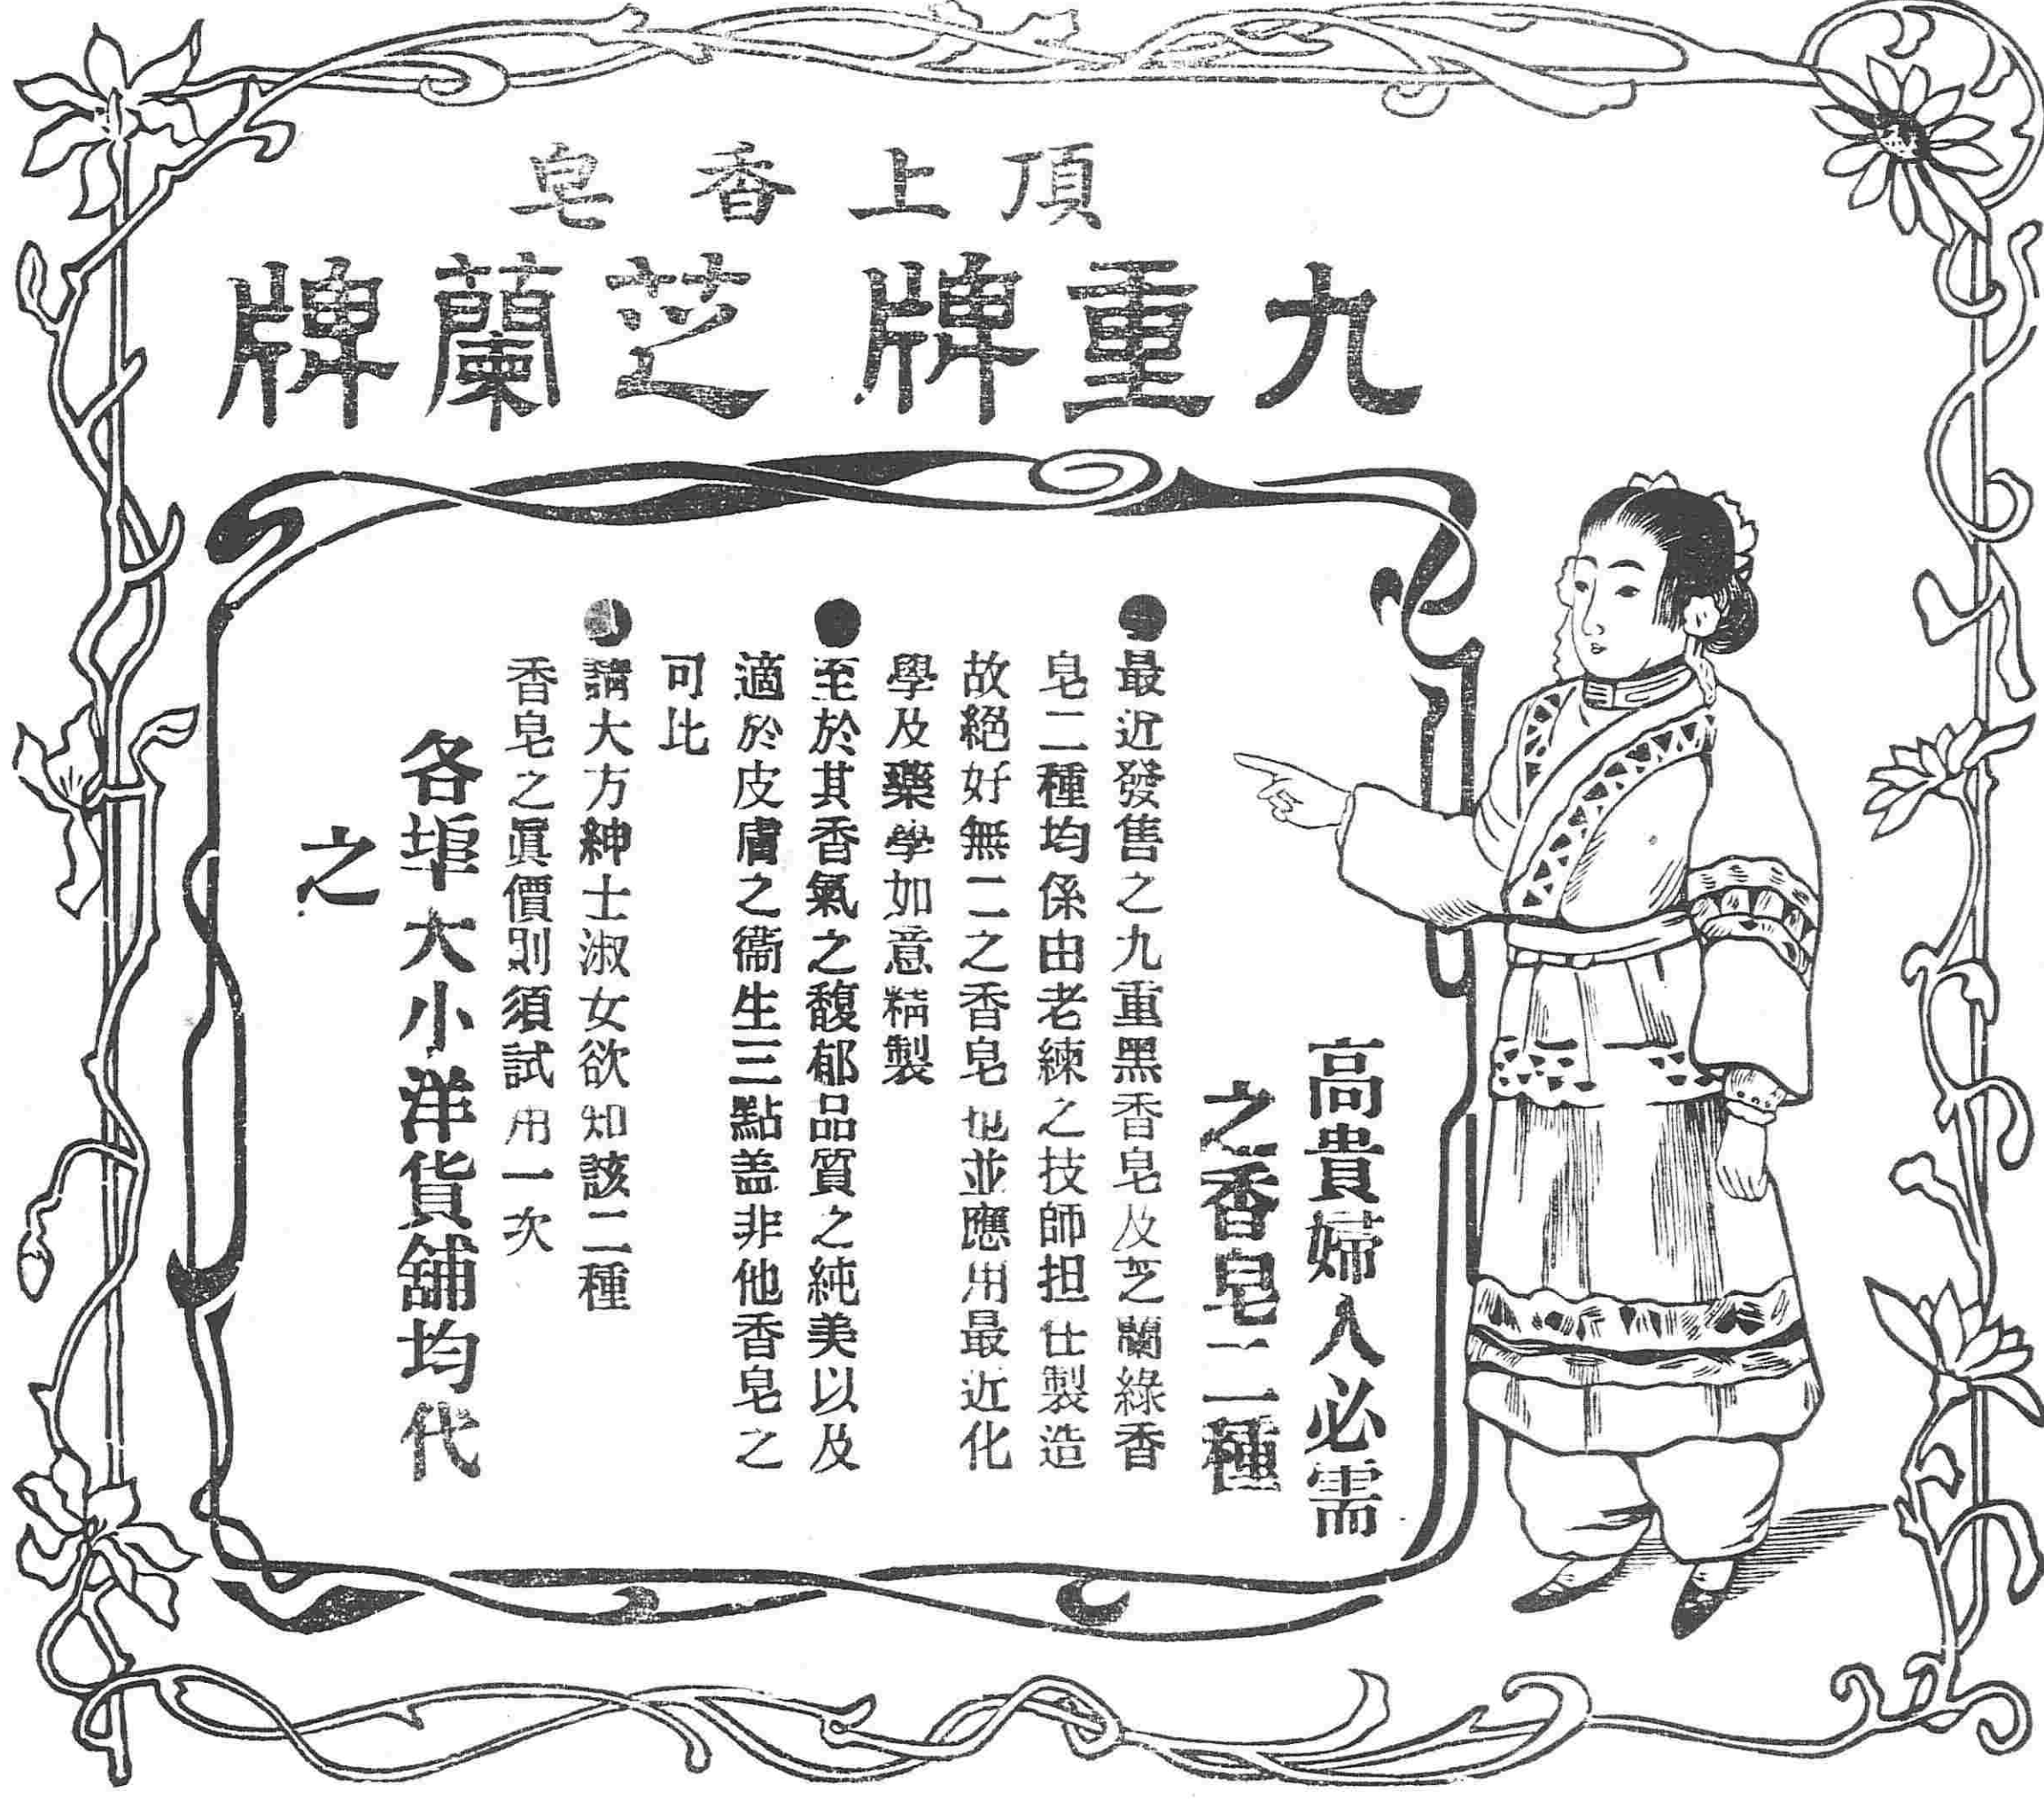 頂上香皂
九重牌 芝蘭牌
高貴婦人必需
之香皂二種
●最近發售之九重黑香皂及芝蘭綠香
皂二種均係由老練之技師担任製造
故絕好無二之香皂也並應用最近化
學及藥學如意精製
●至於其香氣之馥郁品質之純美以及
適於皮膚之衞生三點盖非他香皂之
可比
●請大方紳士淑女欲知該二種
香皂之眞價則須試用一次
各埠大小洋貨舖均代
之